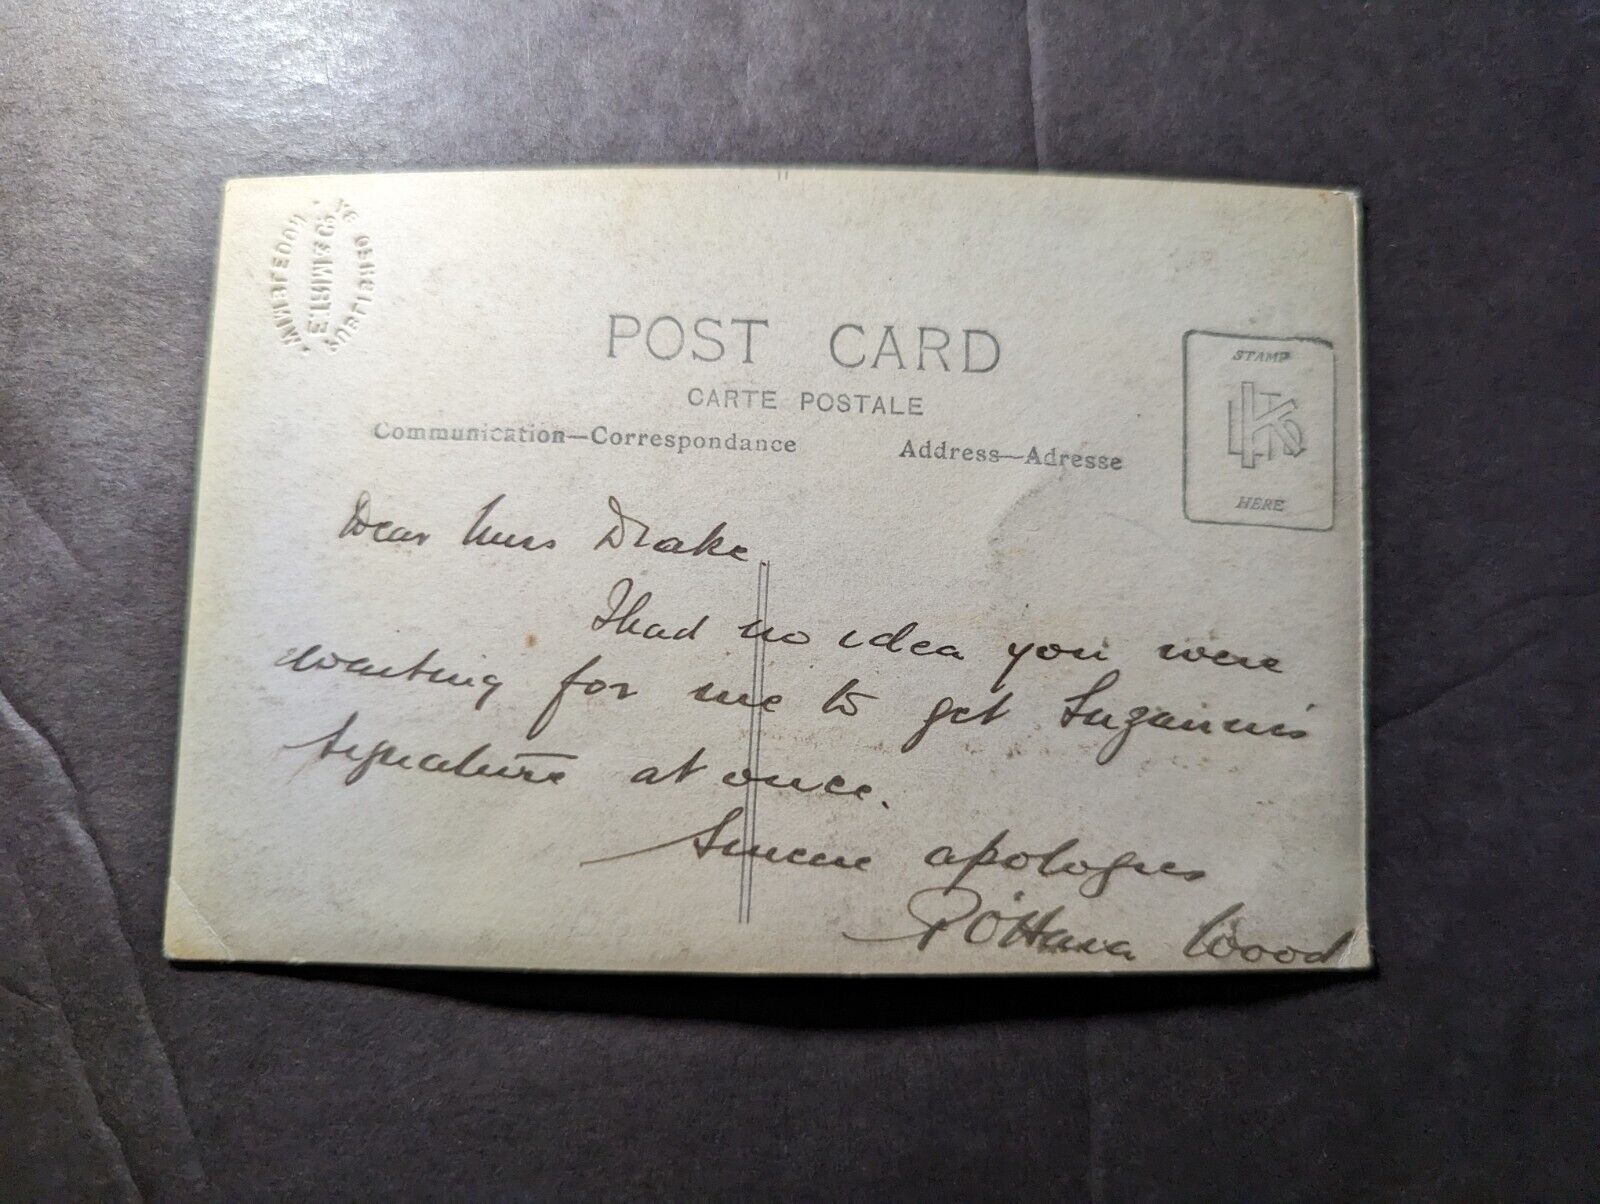 WIMBLEDON
E. TRIM & Co.
POST CARD
CARTE POSTALE
Communication—Correspondance
Address—Adresse
STAMP
HERE
Dear Miss Drake
I had no idea you were
waiting for me to get Suzanne's
signature at once.
Sincere apologies
P O'Hara Wood